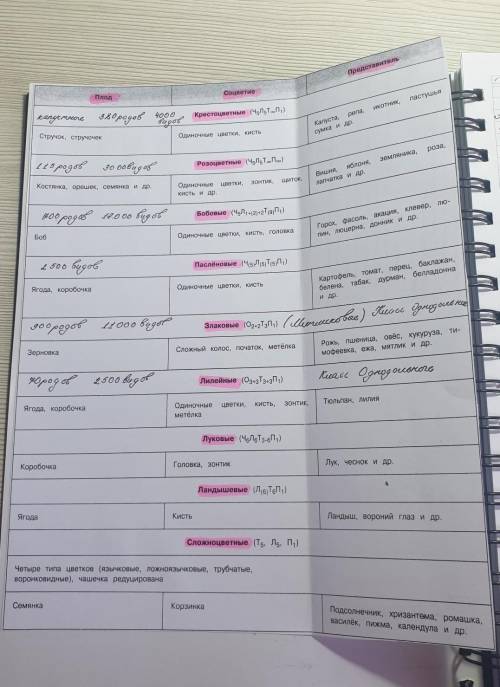 Плод Соцветие Представитель
капустные 380 родов 4000 видов Крестоцветные (Ч₅Л₅Т∞П₁)
Стручок, стручочек Одиночные цветки, кисть Капуста, репа, икотник, пастушья
сумка и др.
115 родов 3000 видов Розоцветные (Ч₅Л₅Т∞П∞)
Костянка, орешек, семянка и др. Одиночные цветки, зонтик, щиток, Вишня, яблоня, земляника, роза,
кисть и др. лапчатка и др.
700 родов 17000 видов Бобовые (Ч₅Л₁₊₍₂₎₊₂Т₍₉₎П₁)
Боб Одиночные цветки, кисть, головка Горох, фасоль, акация, клевер, лю-
пин, люцерна, донник и др.
2500 видов Паслёновые (Ч₍₅₎Л₍₅₎Т₍₅₎П₁)
Ягода, коробочка Одиночные цветки, кисть Картофель, томат, перец, баклажан,
белена, табак, дурман, белладонна
и др.
900 родов 11000 видов Злаковые (О₂₊₂Т₃П₁) (Мятликовая) Класс Однодольные
Зерновка Сложный колос, початок, метёлка Рожь, пшеница, овёс, кукуруза, ти-
мофеевка, ежа, мятлик и др.
70 родов 2500 видов Лилейные (О₃₊₃Т₃₊₃П₁) Класс Однодольные
Ягода, коробочка Одиночные цветки, кисть, зонтик, Тюльпан, лилия
метёлка
Луковые (Ч₆Л₆Т₃₋₆П₁)
Коробочка Головка, зонтик Лук, чеснок и др.
Ландышевые (Л₍₆₎Т₆П₁)
Ягода Кисть Ландыш, вороний глаз и др.
Сложноцветные (Т₅, Л₅, П₁)
Четыре типа цветков (язычковые, ложноязычковые, трубчатые,
воронковидные), чашечка редуцирована
Семянка Корзинка Подсолнечник, хризантема, ромашка,
василёк, пижма, календула и др.